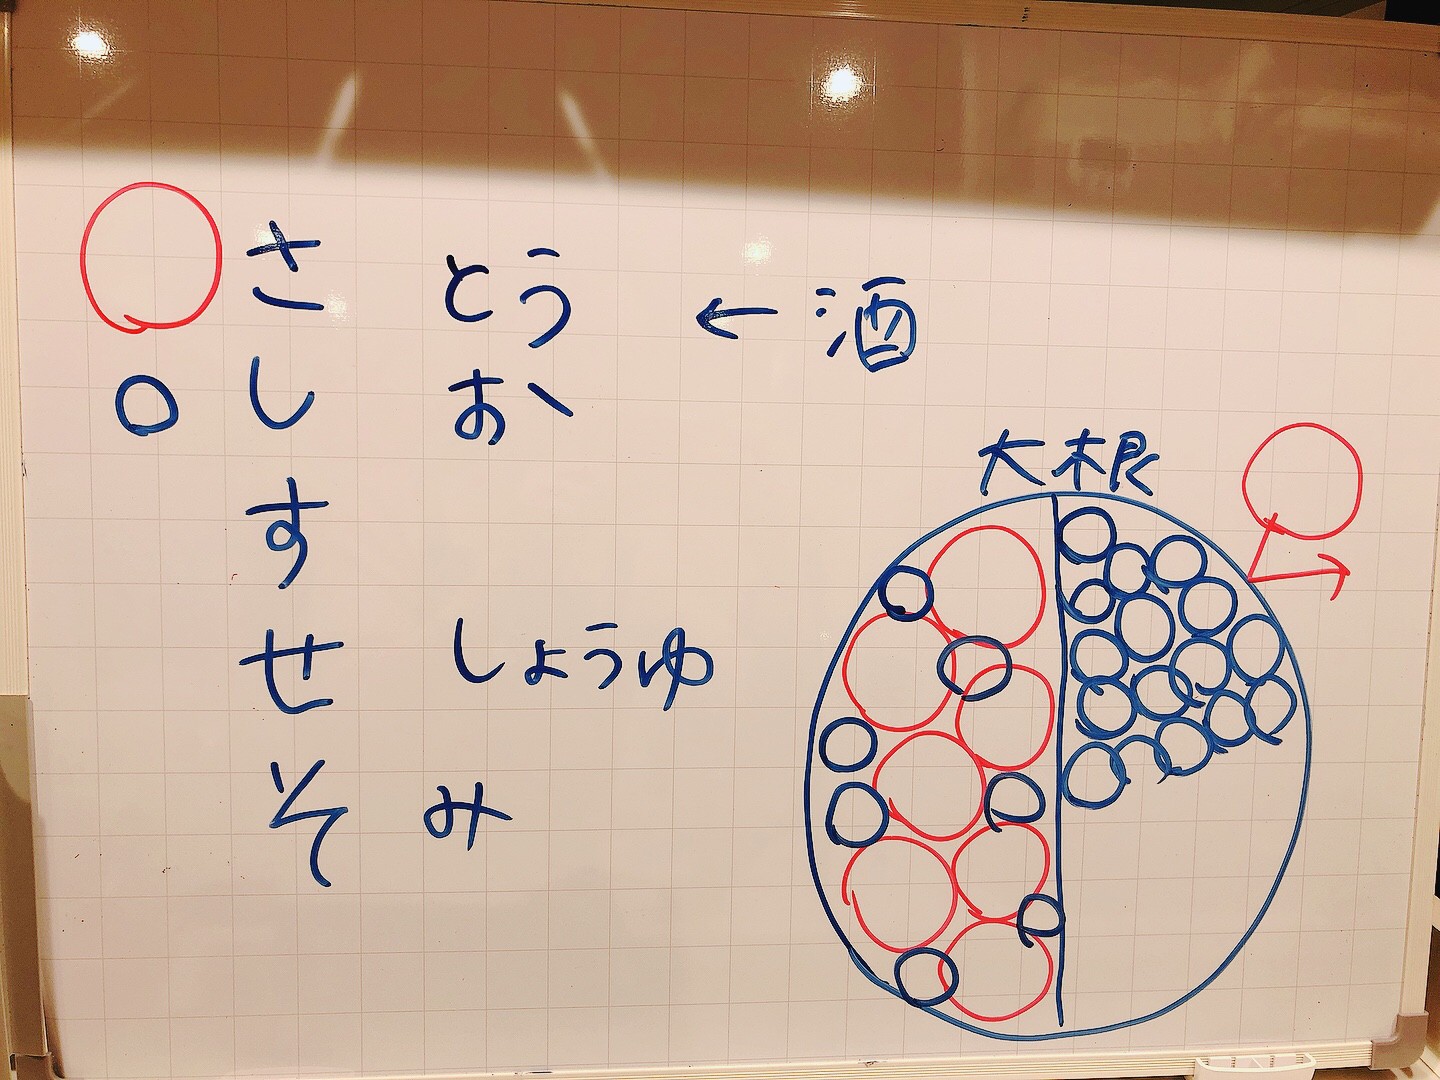 さ とう ← 酒
し お
す
せ しょうゆ
そ み
大根